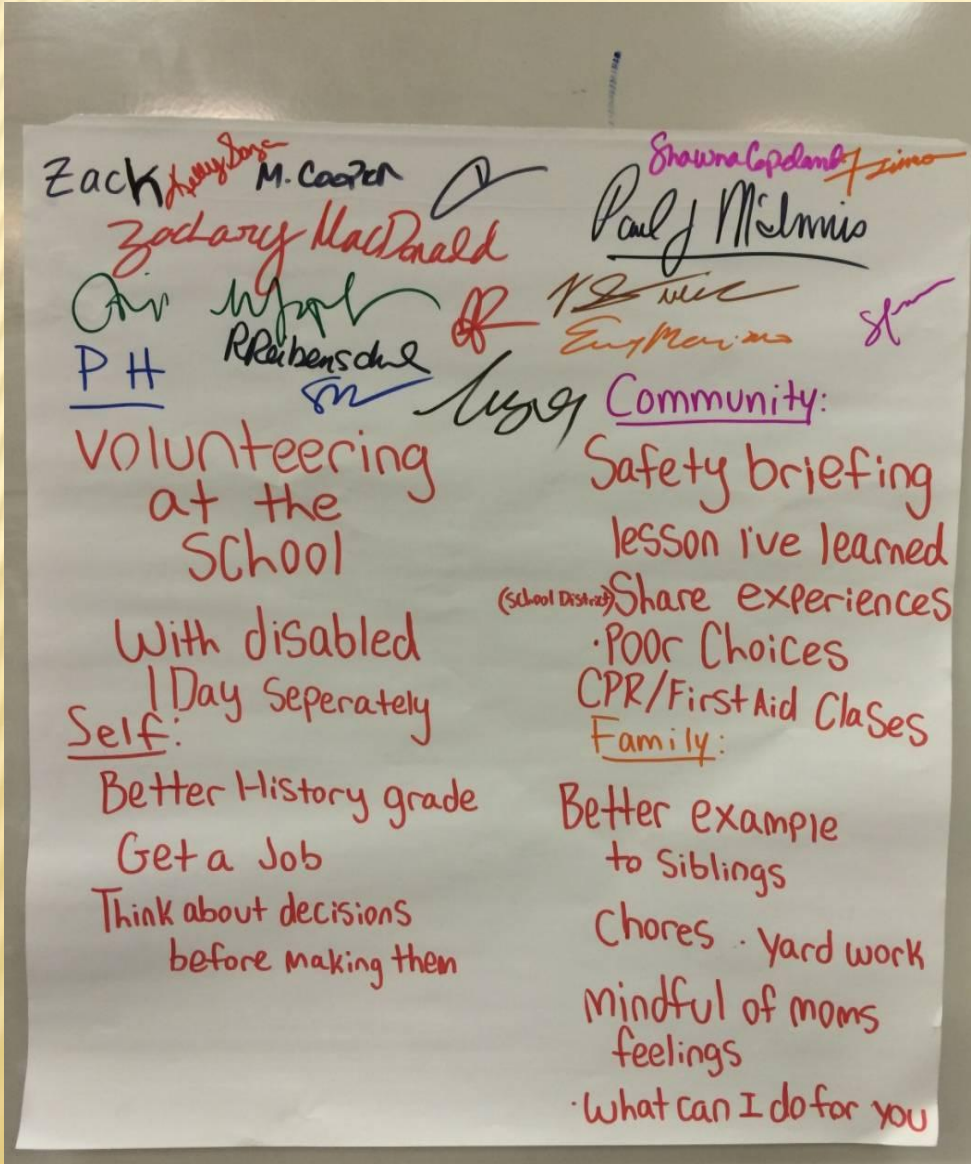 Zack M. Cooper Shawna Copeland
Zachary MacDonald Paul J McInnis
P H
Community:
Volunteering
at the
School
With disabled
1 Day Seperately
Self:
Better History grade
Get a Job
Think about decisions
before making them
Safety briefing
lesson i've learned
(School District) Share experiences
· Poor Choices
CPR/First Aid Clases
Family:
Better example
to Siblings
Chores · yard work
mindful of moms
feelings
· what can I do for you